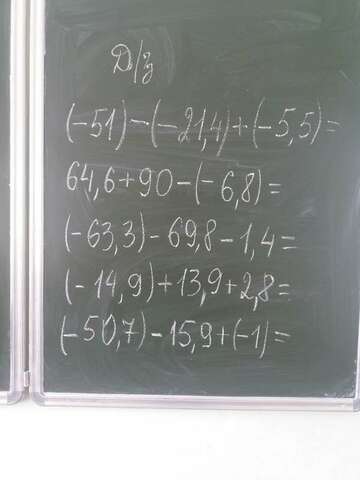 Д/з
(-51)-(-21,4)+(-5,5)=
64,6+90-(-6,8)=
(-63,3)-69,8-1,4=
(-14,9)+13,9+2,8=
(-50,7)-15,9+(-1)=